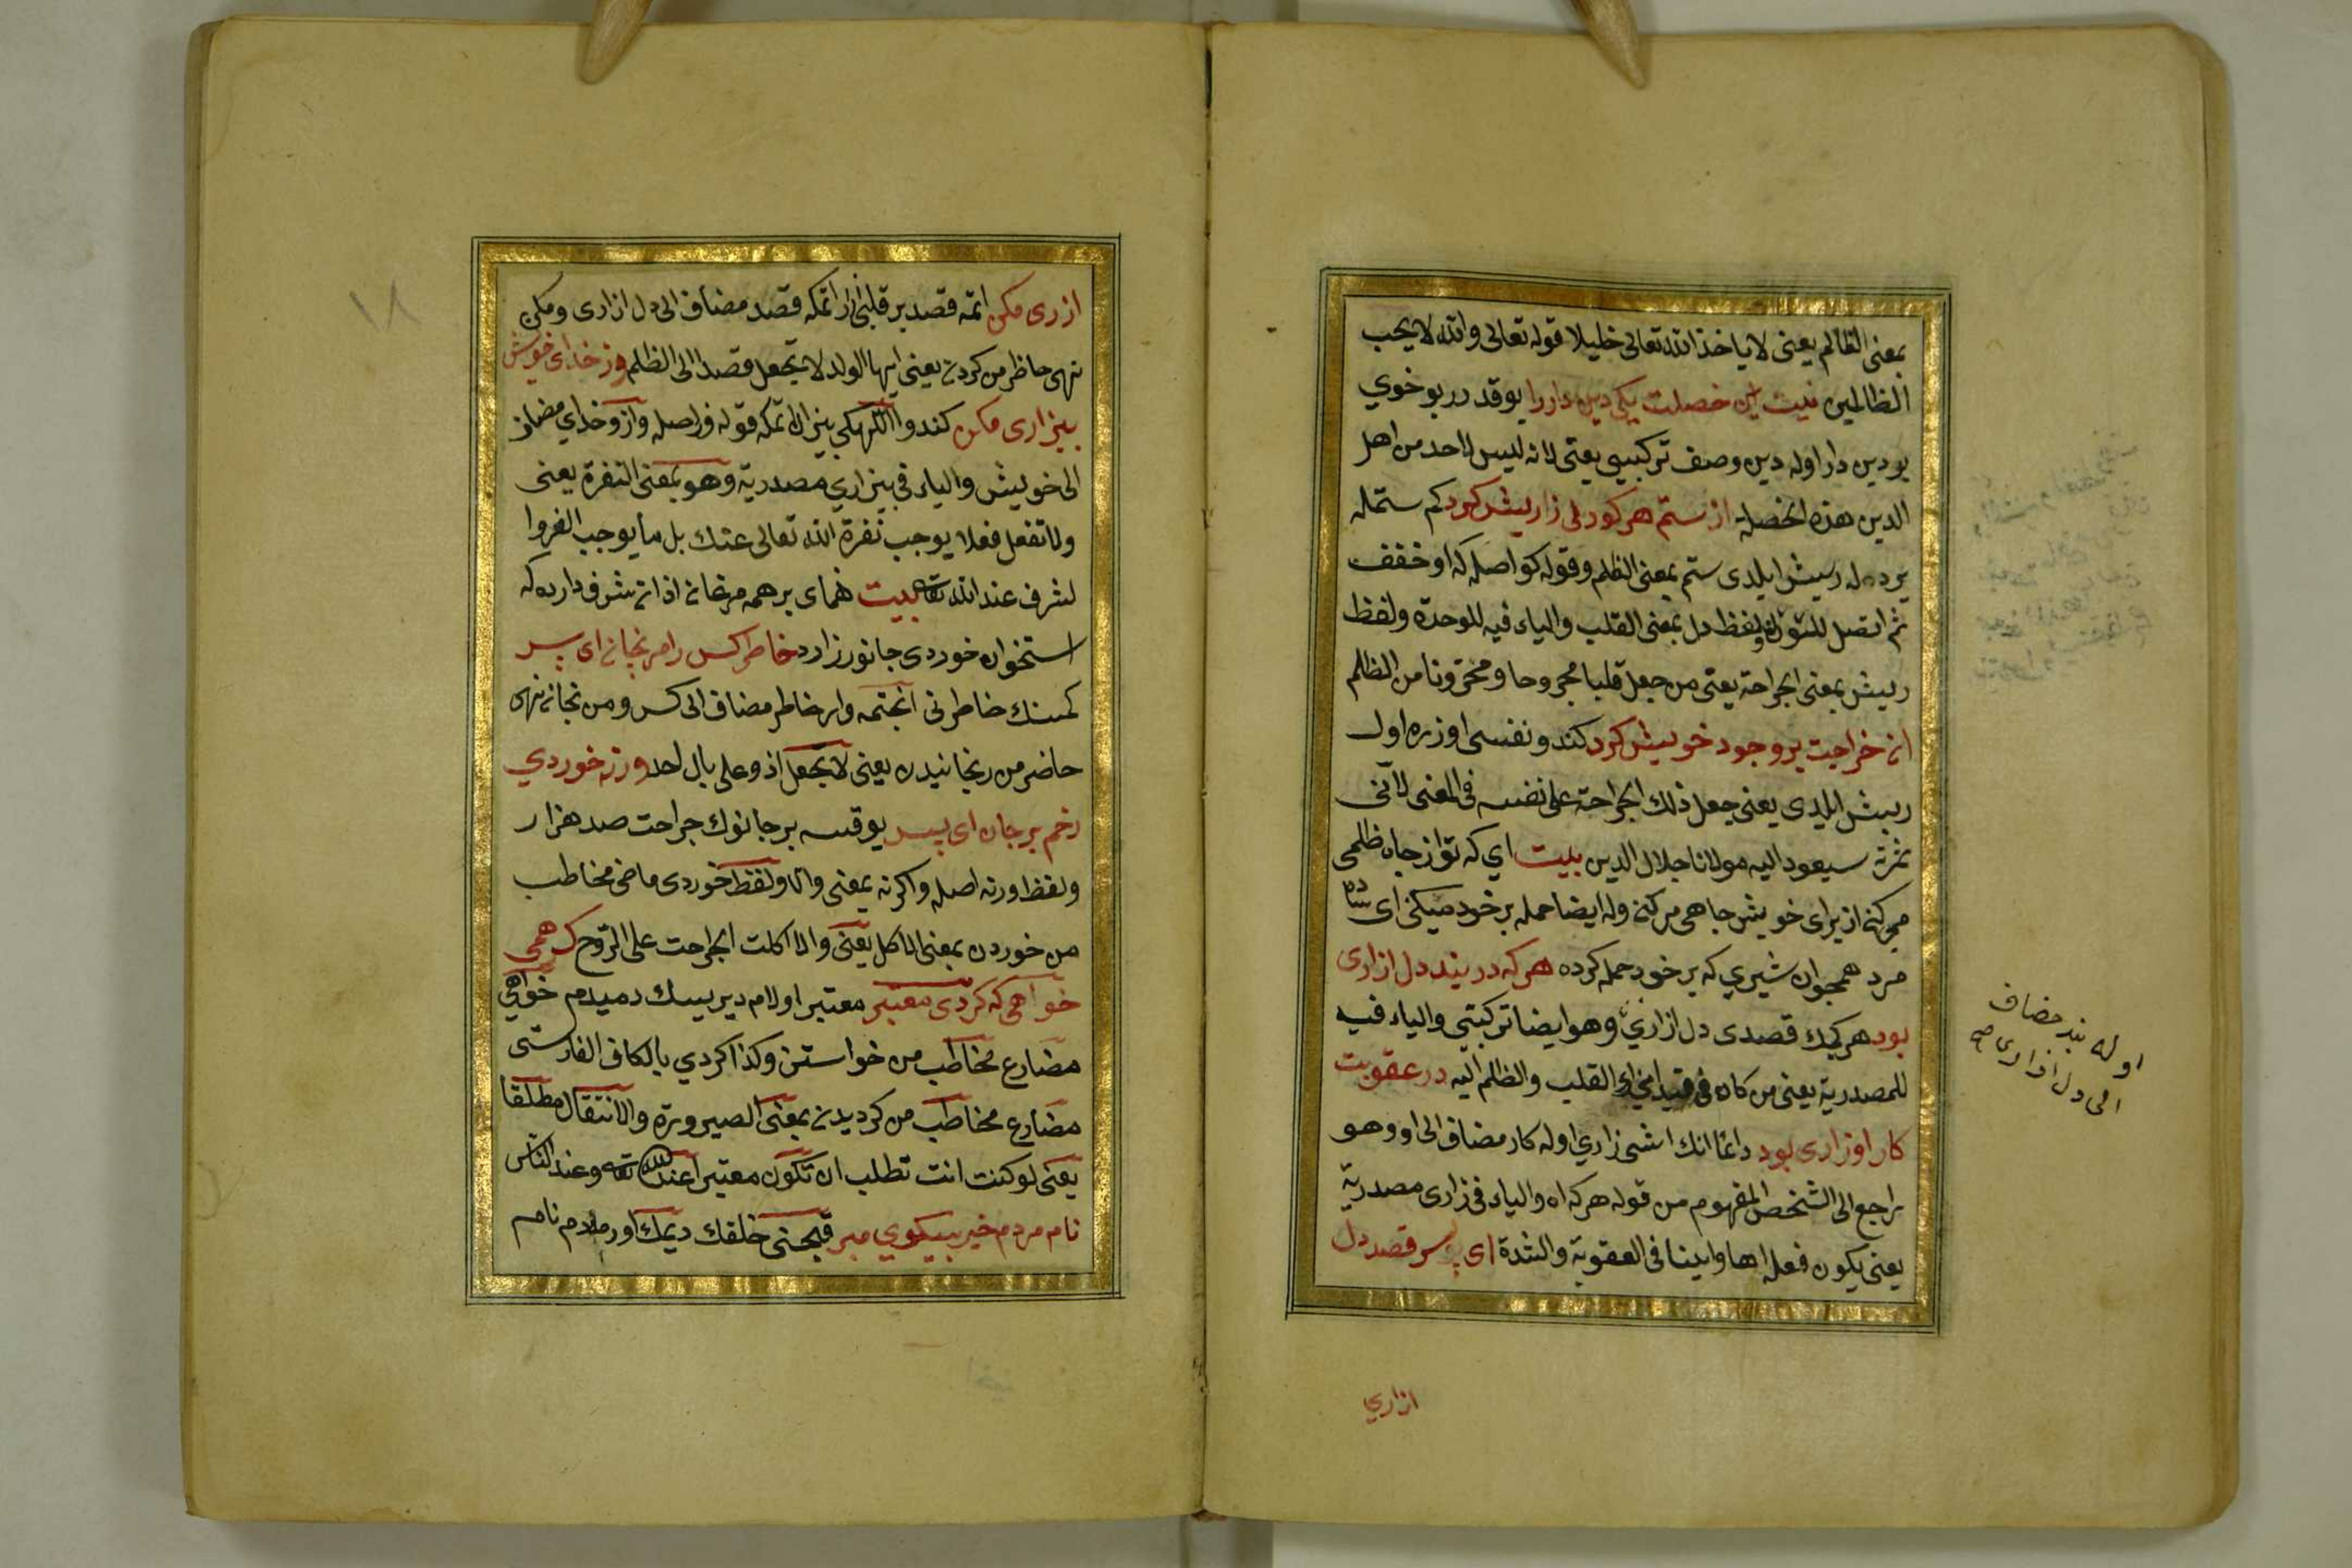 بمعنى الظالم يعنى لا ياخذ الله تعالى خليلا قوله تعالى والله لا يحب
الظالمين نيست اين خصلت يكى دين دار را يوقدر بو خوي
بو دين دار اوله دين وصف تركيبى يعنى لانه ليس لاحد من اهل
الدين هذه الخصلة از ستم هر كو دلى را ريش كرد كم ستمله
بر دله ريش ايلدى ستم بمعنى الظلم وقوله كو اصله كه او خفف
ثم اتصل ولفظ دل بمعنى القلب والياء فيه للوحدة ولفظ
ريش بمعنى الجراحة يعنى من جعل قلبا مجروحا ومحزونا من الظلم
ان جراحت بر وجود خويش كرد كندو نفسى اوزره اول
ريش ايلدى يعنى جعل ذلك الجراحة على نفسه فى المعنى لان
ثمرته سيعود اليه مولانا جلال الدين بيت اي كه تو از جاه ظلمى
ميكنى از براى خويش چاهى ميكنى وله ايضا حمله بر خود ميكنى اى ساده
مرد همچون شيري كه بر خود حمله كرده هر كه در بند دل ازارى
بود هر كيمك قصدى دل ازاري وهو ايضا تركيبى والياء فيه
للمصدرية يعنى من كان فى قيد القلب والظلم اليه در عقوبت
كار او زارى بود دائما انك اشى زاري اوله كار مضاف الى او وهو
راجع الى الشخص المفهوم من قوله هر كه اه والياء فى زارى مصدرية
يعنى يكون فعله اها وانينا فى العقوبة والشدة اى پسر قصد دل
اوله بند مضاف
الى دل ازارى صح
ازاري
١٨
ازرى مكن اتمه قصد بر قلبى قصد مضاف الى دل ازارى ومكن
نهى حاظر من كردن يعنى ايها الولد لا تجعل قصدا الى الظلم وز خداى خويش
بيزارى مكن كندو بيزار اتمكه قوله وز اصله واز وخداي مضاف
الى خويش والياء فى بيزاري مصدرية وهو بمعنى النفرة يعنى
ولا تفعل فعلا يوجب نفرة الله تعالى عنك بل ما يوجب
لشرف عند الله تعه بيت هماى بر همه مرغان از ان شرف دارد كه
استخوان خورد ى جانور زارد خاطر كس را مرنجان اى پسر
كمسنك خاطرنى انجتمه وار خاطر مضاف الى كس و مرنجان نهى
حاضر من رنجانيدن يعنى لا تجعل اذو على بال احد ورنه خوردي
زخم بر جان اى پسر يوقسه بر جانوك جراحت صد هزار
ولفظ ورنه اصله واكرنه بمعنى والا ولفظ خوردى ماضى مخاطب
من خوردن بمعنى الاكل يعنى والا اكلت الجراحت على الروح كر همى
خواهى كه كردى معتبر معتبر اولام ديريسك دميدم خواهي
مضارع مخاطب من خواستن وكذا كردي بالكاف الفارسى
مضارع مخاطب من كرديدن بمعنى الصيرورة والانتقال مطلقا
يعنى لو كنت انت تطلب ان تكون معتبرا عند الله تعه وعند الناس
نام مردم خير بنيكوي مبر خلقك ديمك اور مردم نام